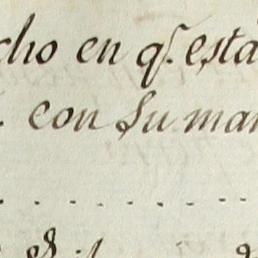 cho en q.e está
con su mar